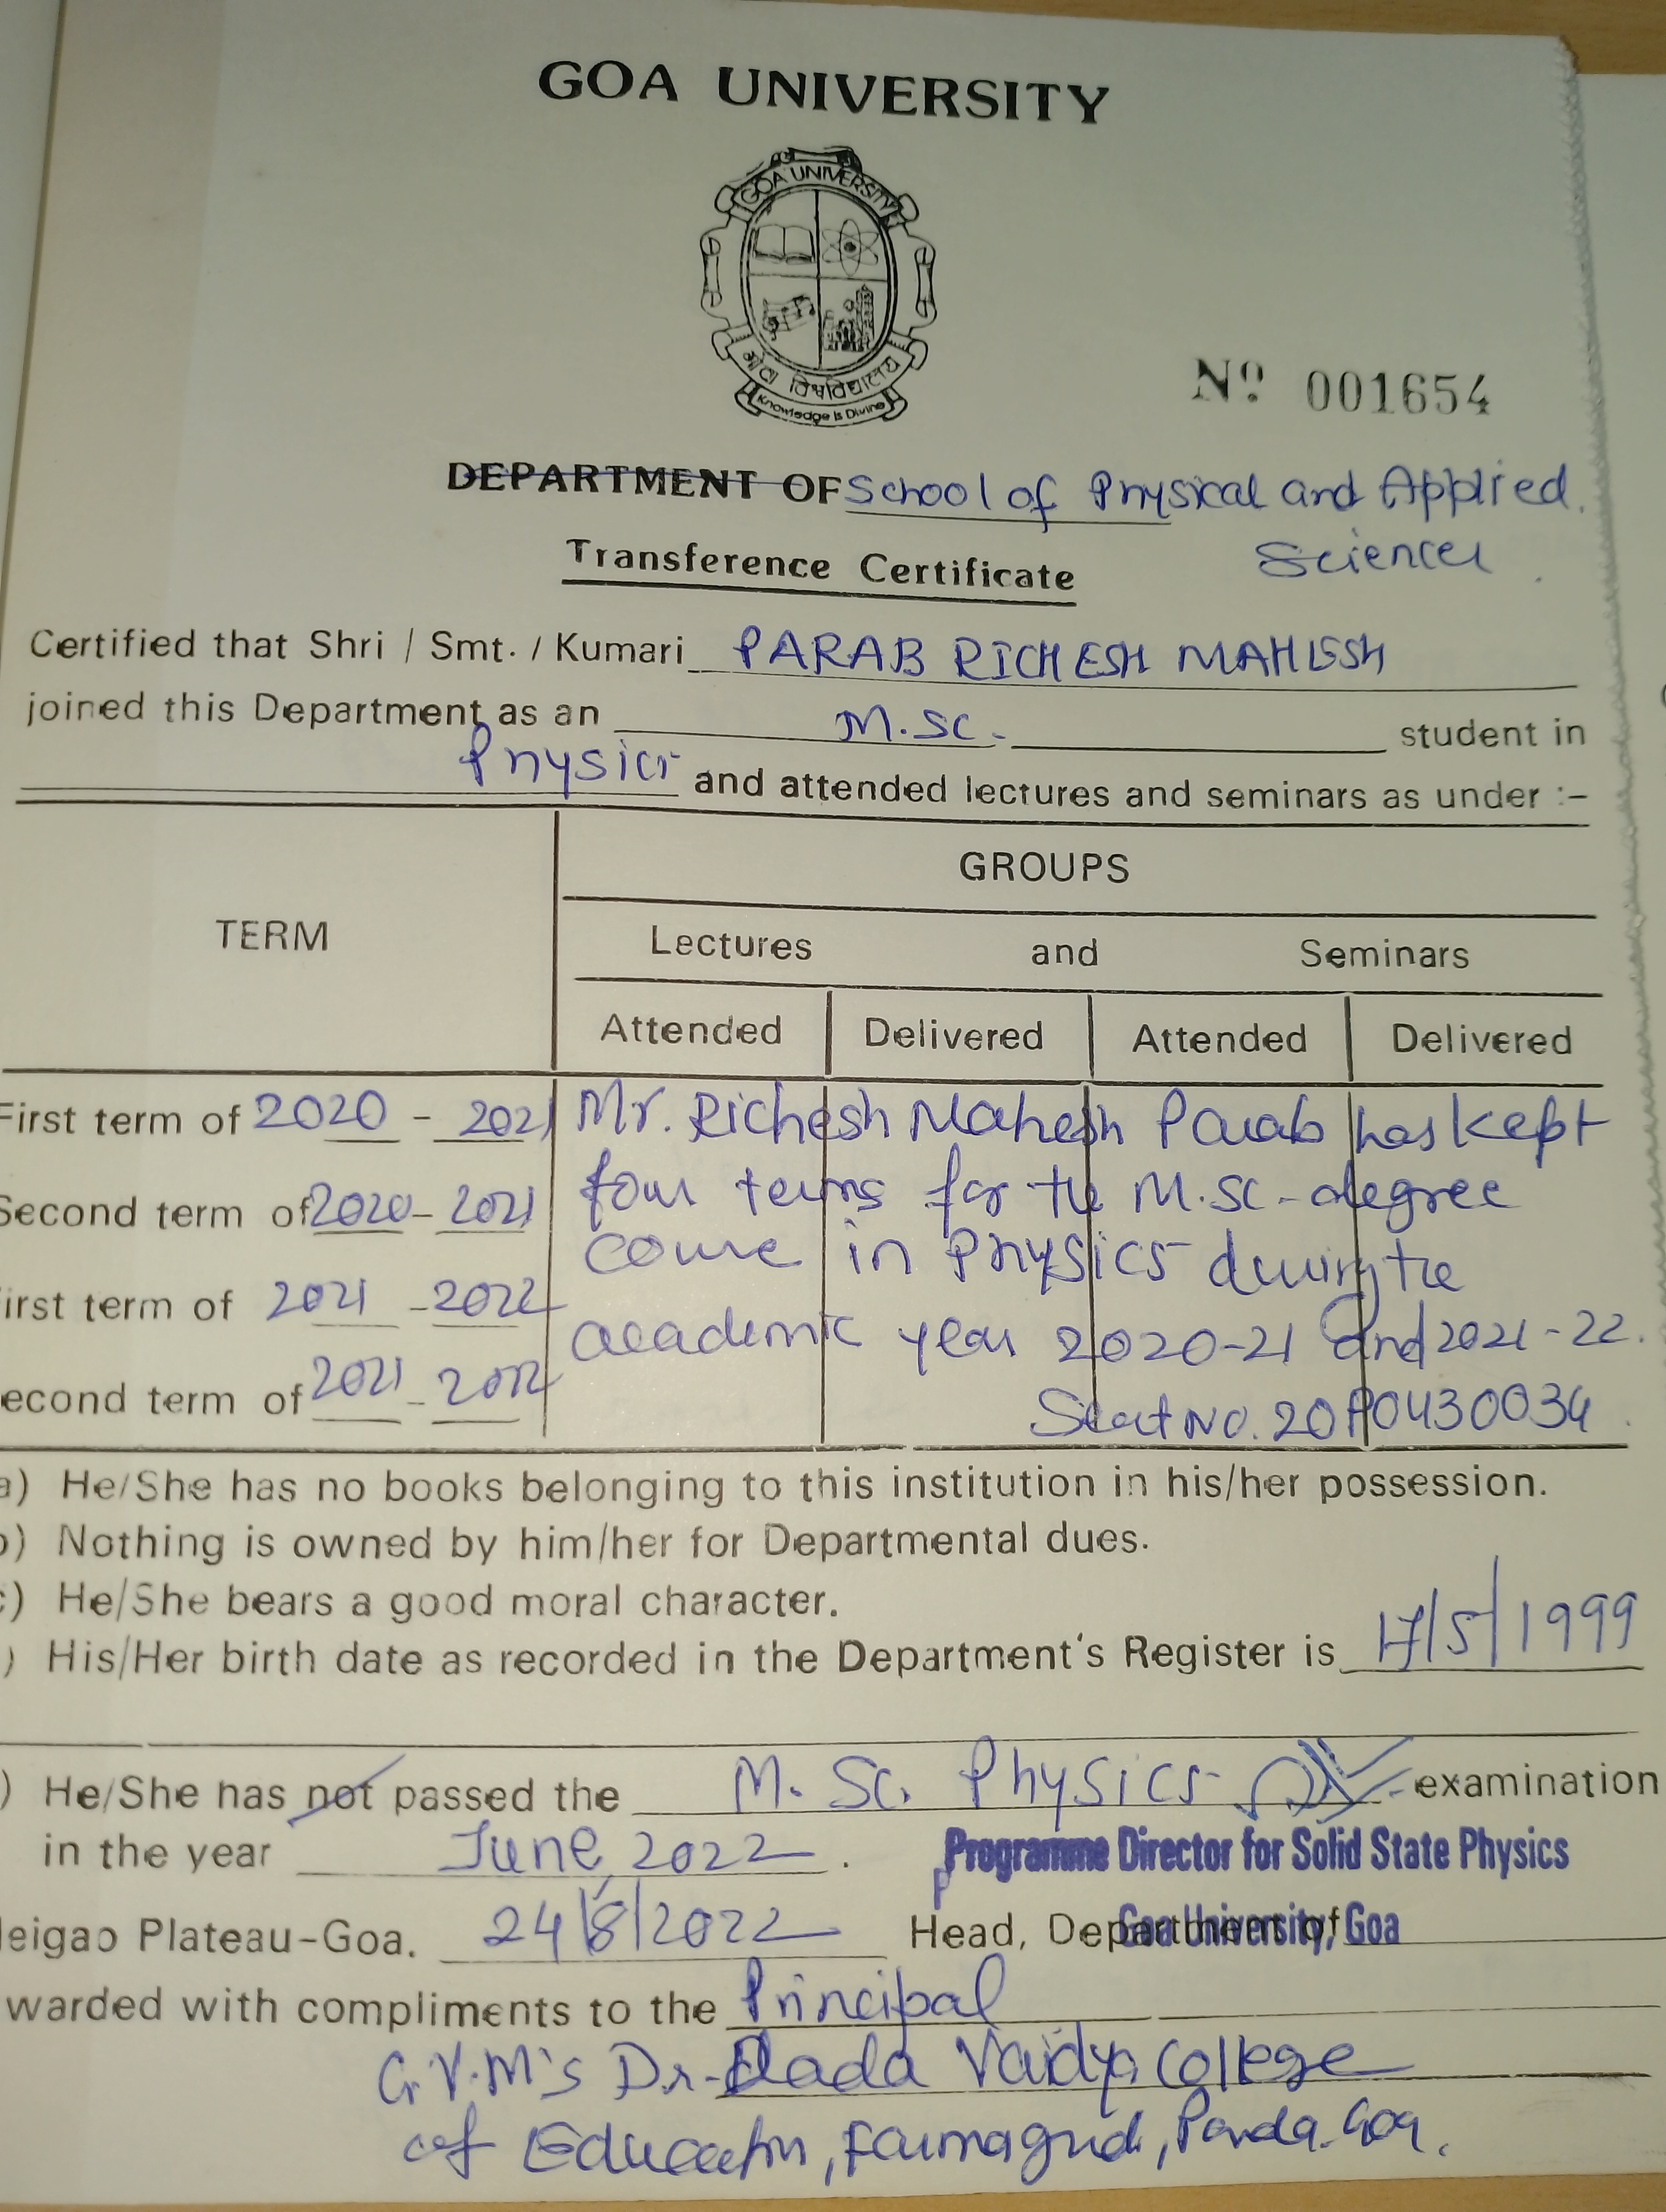 GOA UNIVERSITY
GOA UNIVERSITY
गोंय विश्वविद्यालय
Knowledge is Divine
Nº 001654
DEPARTMENT OF School of Physical and Applied
Sciences
Transference Certificate
Certified that Shri / Smt. / Kumari PARAB RICHESH MAHESH
joined this Department as an M.Sc. student in
Physics and attended lectures and seminars as under :–
TERM
GROUPS
Lectures and Seminars
Attended Delivered Attended Delivered
First term of 2020 - 2021
Second term of 2020 - 2021
irst term of 2021 - 2022
econd term of 2021 - 2022
Mr. Richesh Mahesh Parab has kept
four terms for the M.Sc. degree
course in Physics during the
academic year 2020-21 and 2021-22.
Seat No. 20P0430034
a) He/She has no books belonging to this institution in his/her possession.
) Nothing is owned by him/her for Departmental dues.
) He/She bears a good moral character.
) His/Her birth date as recorded in the Department's Register is 17/5/1999
) He/She has not passed the M. Sc. Physics examination
in the year June 2022.
Programme Director for Solid State Physics
leigao Plateau-Goa. 24/8/2022 Head, Department of
Goa University, Goa
warded with compliments to the Principal
G.V.M's Dr. Dada Vaidya College
of Education, Farmagudi, Ponda. Goa.